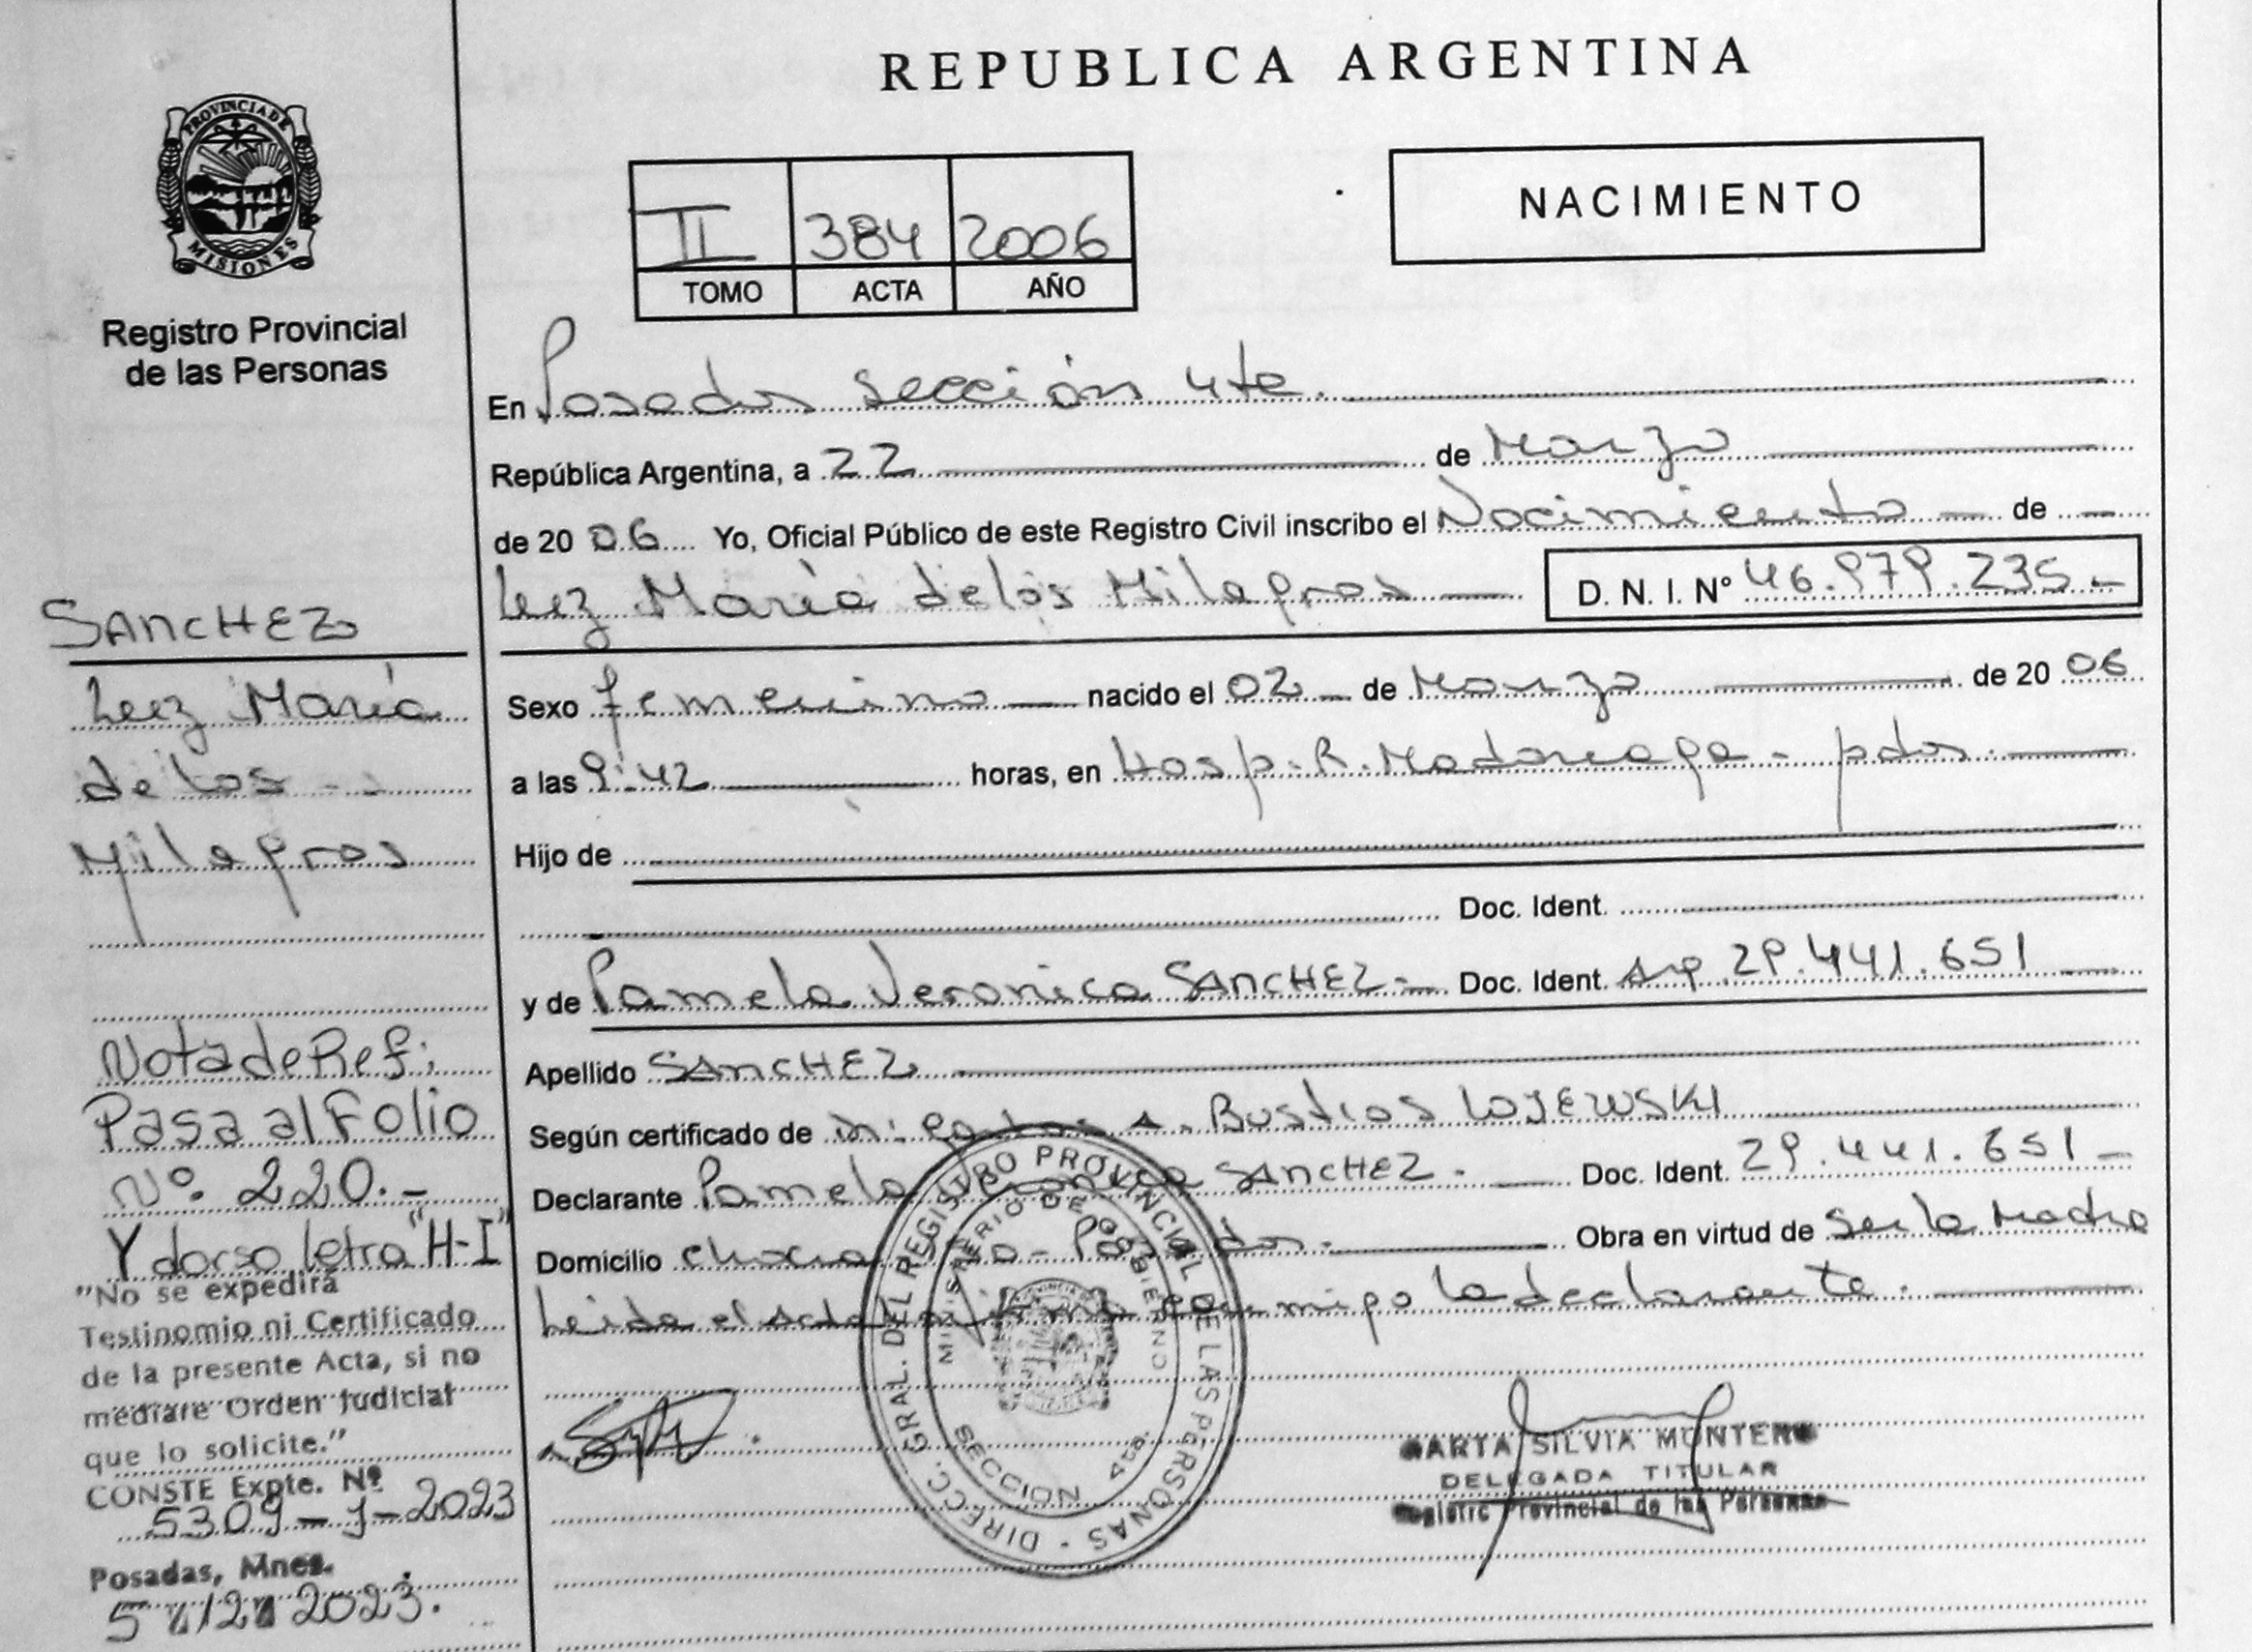 REPUBLICA ARGENTINA
PROVINCIA DE
MISIONES
Registro Provincial
de las Personas
II 384 2006
TOMO ACTA AÑO
NACIMIENTO
En Posadas sección 4ta.
República Argentina, a 22 de Marzo
de 20 06 Yo, Oficial Público de este Registro Civil inscribo el Nacimiento de
Luz María de los Milagros D. N. I. Nº 46.979.235
Sexo femenino nacido el 02 de Marzo de 20 06
a las 9:42 horas, en Hosp. R. Madariaga - pdas.
Hijo de
Doc. Ident.
y de Pamela Veronica SANCHEZ Doc. Ident. 29.441.651
Apellido SANCHEZ
Según certificado de A. Bustios LOJEWSKI
Declarante Pamela Veronica SANCHEZ. Doc. Ident. 29.441.651
Domicilio Posadas. Obra en virtud de Ser la Madre
Leida el Acta la firma conmigo la declarante.
DIRECC. GRAL. DEL REGISTRO PROVINCIAL DE LAS PERSONAS
MINISTERIO DE GOBIERNO
SECCION 4ta.
MARTA SILVIA MONTERO
DELEGADA TITULAR
Registro Provincial de las Personas
SANCHEZ
Luz María
de los
Milagros
Nota de Ref:
Pasa al Folio
Nº. 220.-
Y dorso letra "H-I"
"No se expedirá
Testinomio ni Certificado
de la presente Acta, si no
mediare Orden Judicial
que lo solicite."
CONSTE Expte. Nº
5309-J-2023
Posadas, Mnes.
2023.